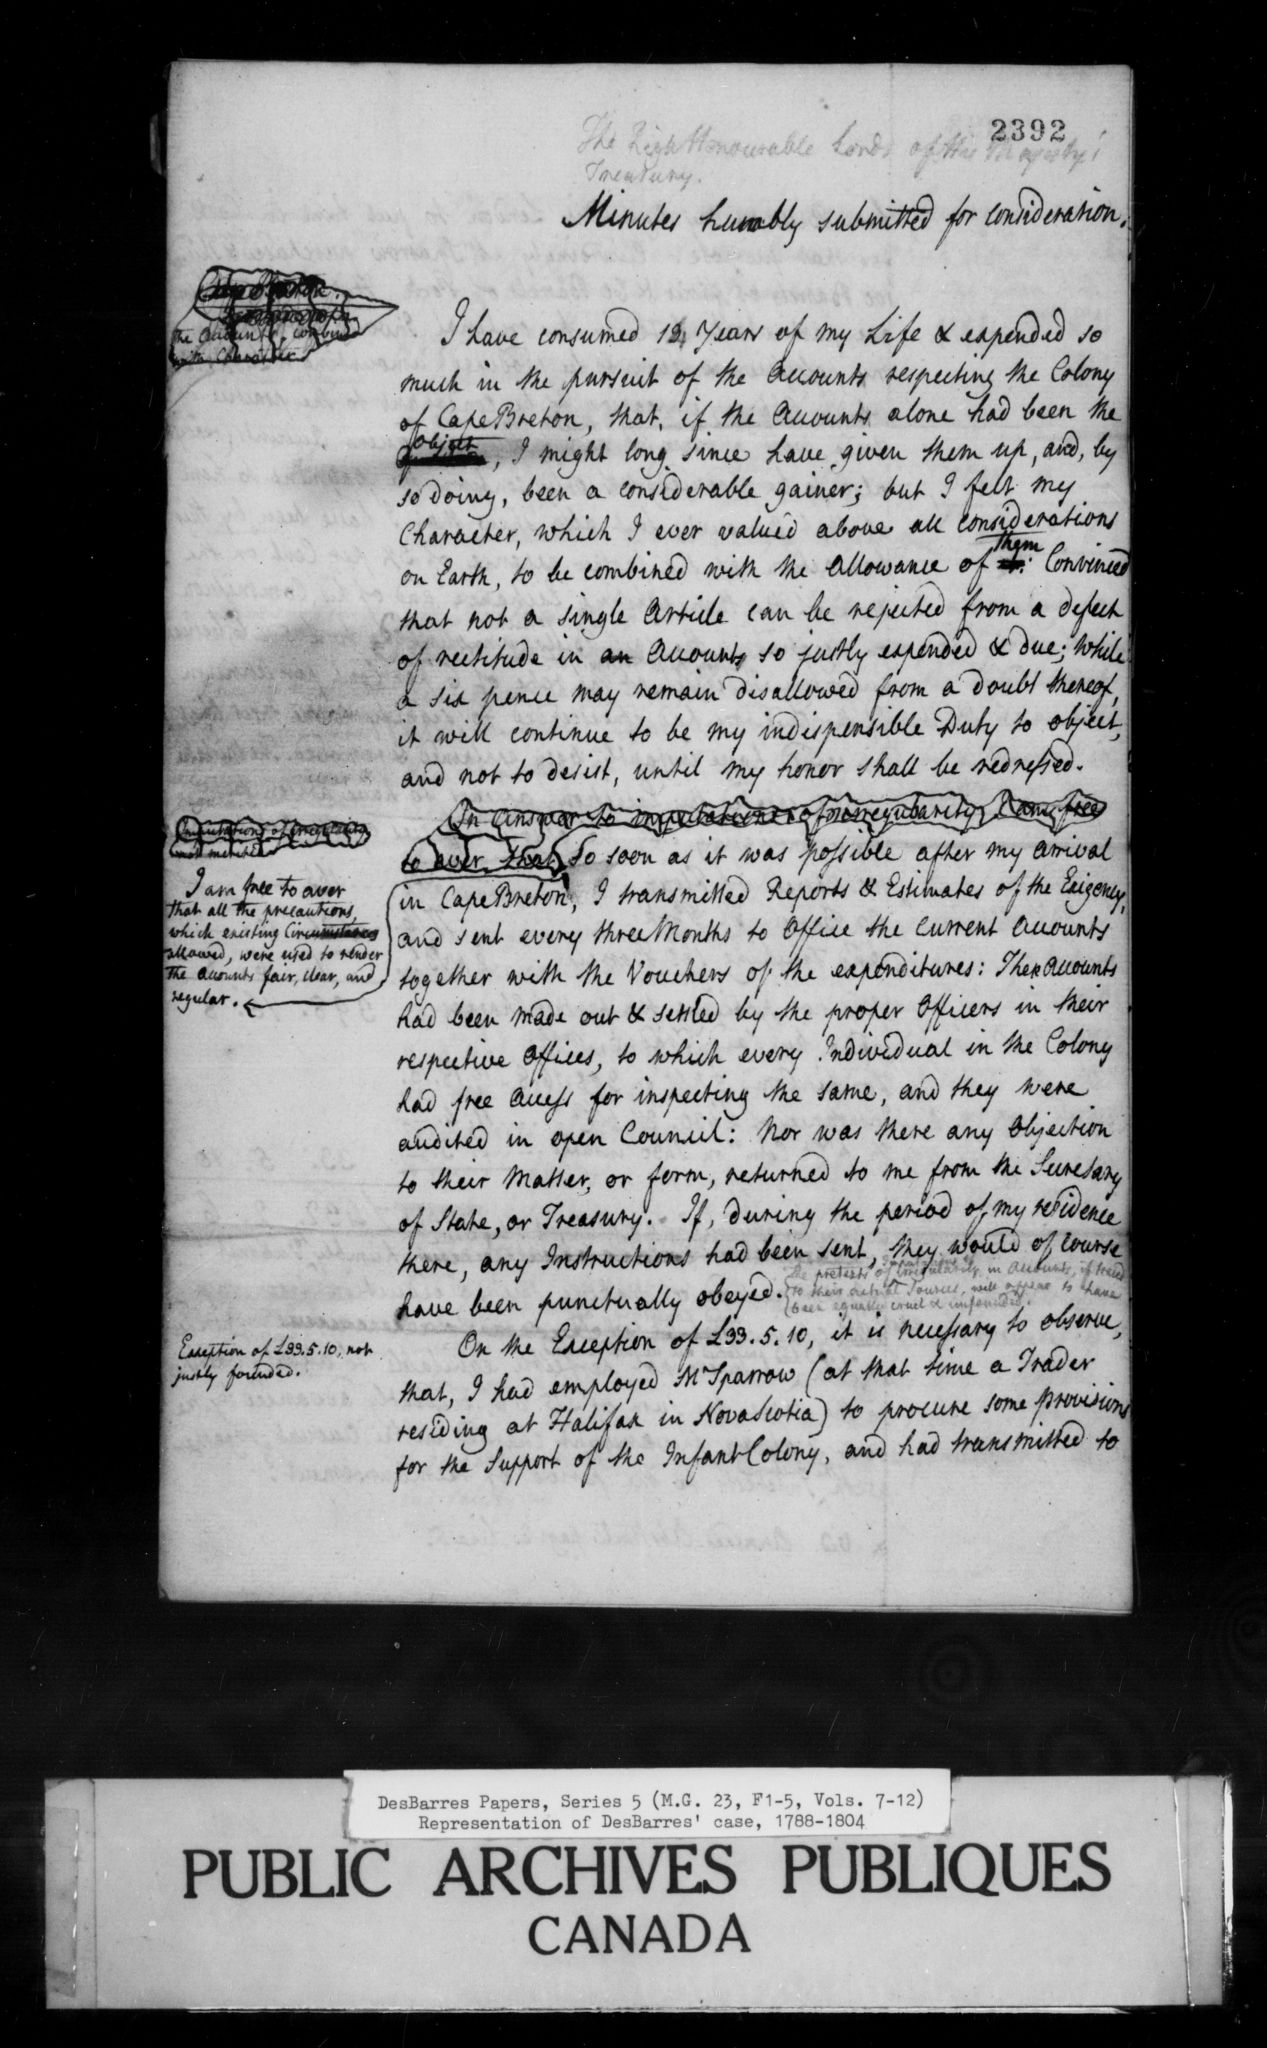 2392
The Right Honourable Lords of His Majesty's
Treasury.
Minutes humbly submitted for consideration.
Cape Breton.
the Accounts, combined
with Character
I have consumed 12 Years of my Life & expended so
much in the pursuit of the Accounts respecting the Colony
of Cape Breton, that, if the Accounts alone had been the
Object, I might long since have given them up, and, by
so doing, been a considerable gainer; but I felt my
Character, which I ever valued above all considerations
on Earth, to be combined with the Allowance of them. Convinced
that not a single Article can be rejected from a defect
of rectitude in an Accounts so justly expended & due; while
a six pence may remain disallowed from a doubt thereof,
it will continue to be my indispensible Duty to object,
and not to desist, until my honor shall be redressed.
Imputations of irregularity
not merited
In answer to imputations of irregularity I am free
to aver, that, So soon as it was possible after my arrival
in Cape Breton, I transmitted Reports & Estimates of the Exigency,
and sent every three Months to Office the Current Accounts
together with the Vouchers of the expenditures: These Accounts
had been made out & settled by the proper Officers in their
respective Offices, to which every Individual in the Colony
had free Access for inspecting the same, and they were
audited in open Council: Nor was there any Objection
to their Matter, or form, returned to me from the Secretary
of State, or Treasury. If, during the period of my residence
there, any Instructions had been sent, they would of course
have been punctually obeyed.
I am free to aver
that all the precautions,
which existing Circumstances
allowed, were used to render
the Accounts fair, clear, and
regular.
Imputations of
the pretexts of irregularity in Accounts, if traced
to their actual Sources, will appear to have
been equally cruel & unfounded.
Exception of £33.5.10, not
justly founded.
On the Exception of £33.5.10, it is necessary to observe,
that, I had employed Mr Sparrow (at that time a Trader
residing at Halifax in Nova Scotia) to procure some provisions
for the Support of the Infant Colony, and had transmitted to
DesBarres Papers, Series 5 (M.G. 23, F1-5, Vols. 7-12)
Representation of DesBarres' case, 1788-1804
PUBLIC ARCHIVES PUBLIQUES
CANADA